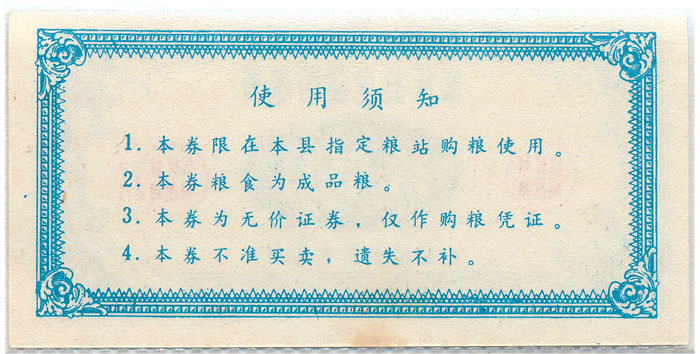 使用须知
1. 本券限在本县指定粮站购粮使用。
2. 本券粮食为成品粮。
3. 本券为无价证券，仅作购粮凭证。
4. 本券不准买卖，遗失不补。